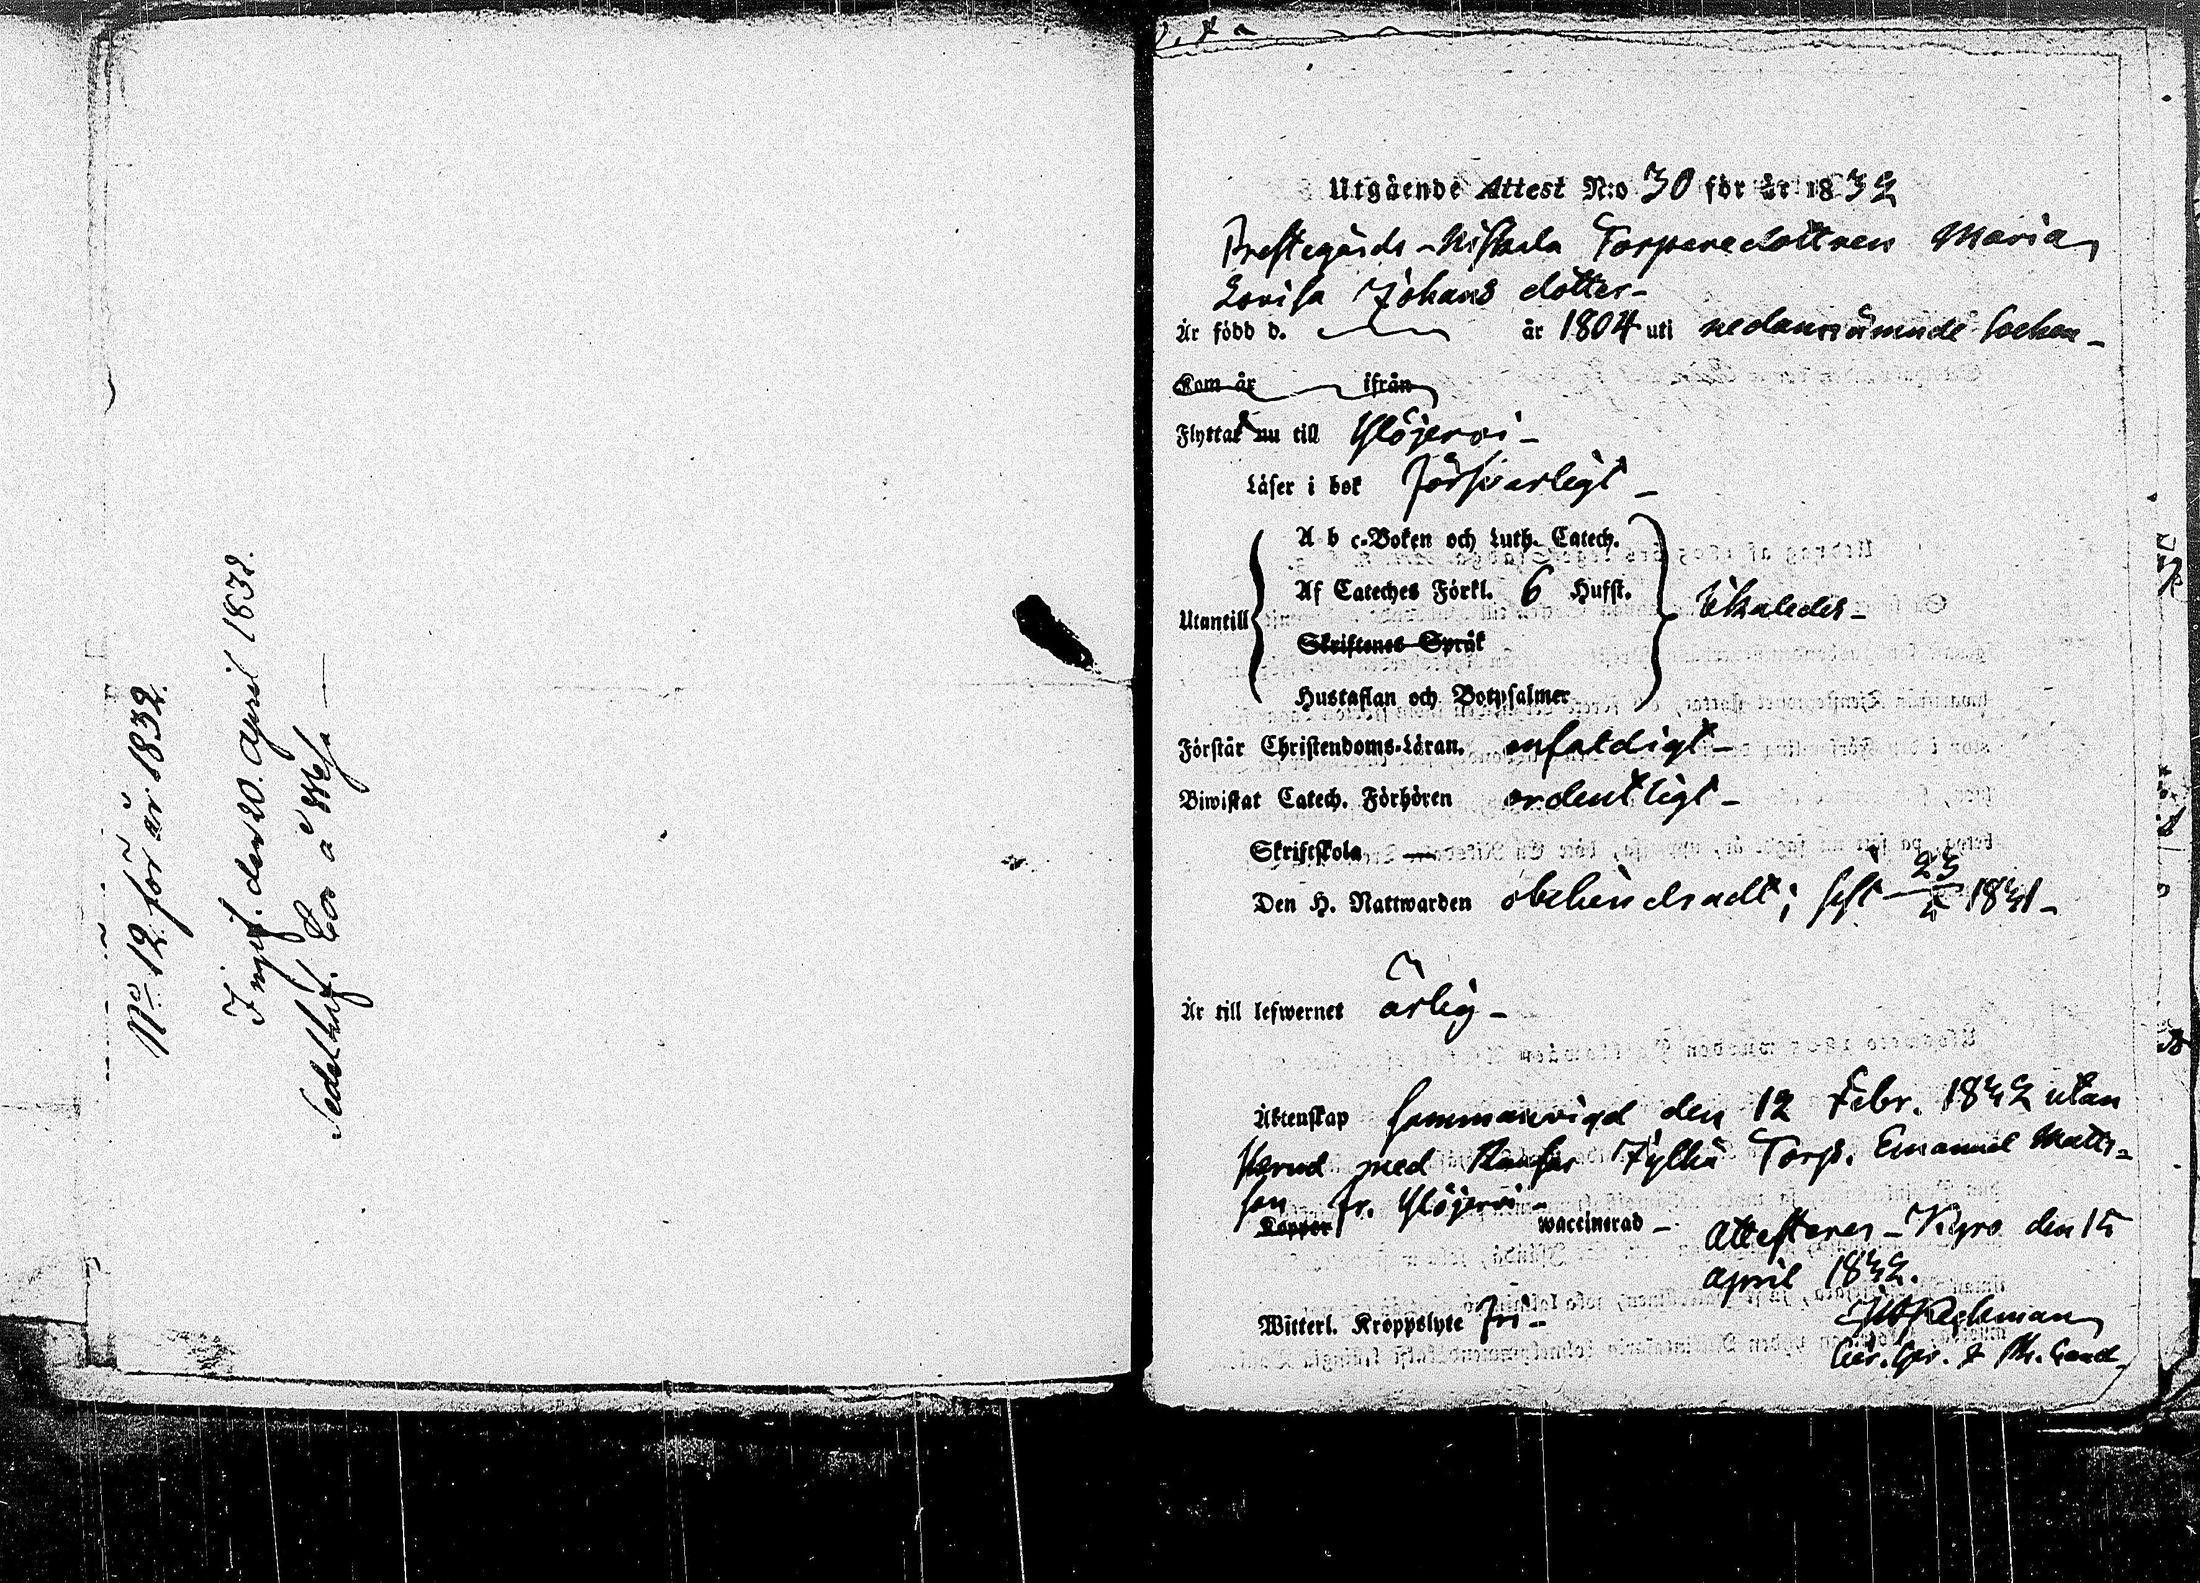 No 12 för år 1832.
Ingif. den 20. April 1832.
Utgående Attest N:o 30 för år 1832
Prestegårds Torparedottren Maria
Lovisa Johans dotter
Är född d. år 1804 uti nedannämnde Socken
Kom år ifrån
Flyttat nu till Ylöjervi
Läser i bok försvarligt
A b c-Boken och Luth. Catech.
Af Cateches Förkl. 6 Hufst.
Utantill
Skriftenes Språk
Hustaflan och Botpsalmer
Förstår Christendoms-Läran. enfaldigt
Biwistat Catech. Förhören ordentligt
Skriftskola
Den H. Nattwarden obehindradt; sist 1831
Är till lefwernet ärlig
Äktenskap sammanvigd den 12 Febr. 1832 utan
med Torp. Emanuel Matts-
son fr. Ylöjervi
Koppor waccinerad
Attesteras Kyro den 15
April 1832.
Witterl. Kroppslyte fri